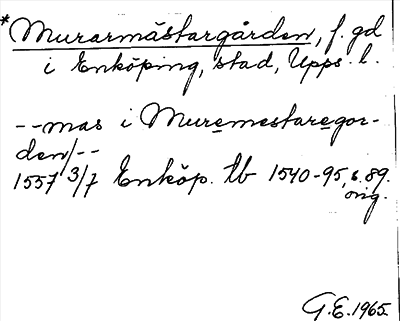 *Murarmästargården, f. gd
i Enköping, stad, Upps. l.
--mas i Muremestaregor-
den/--
1557 3/7 Enköp. tb 1540-95, s. 89.
orig.
G.E. 1965.